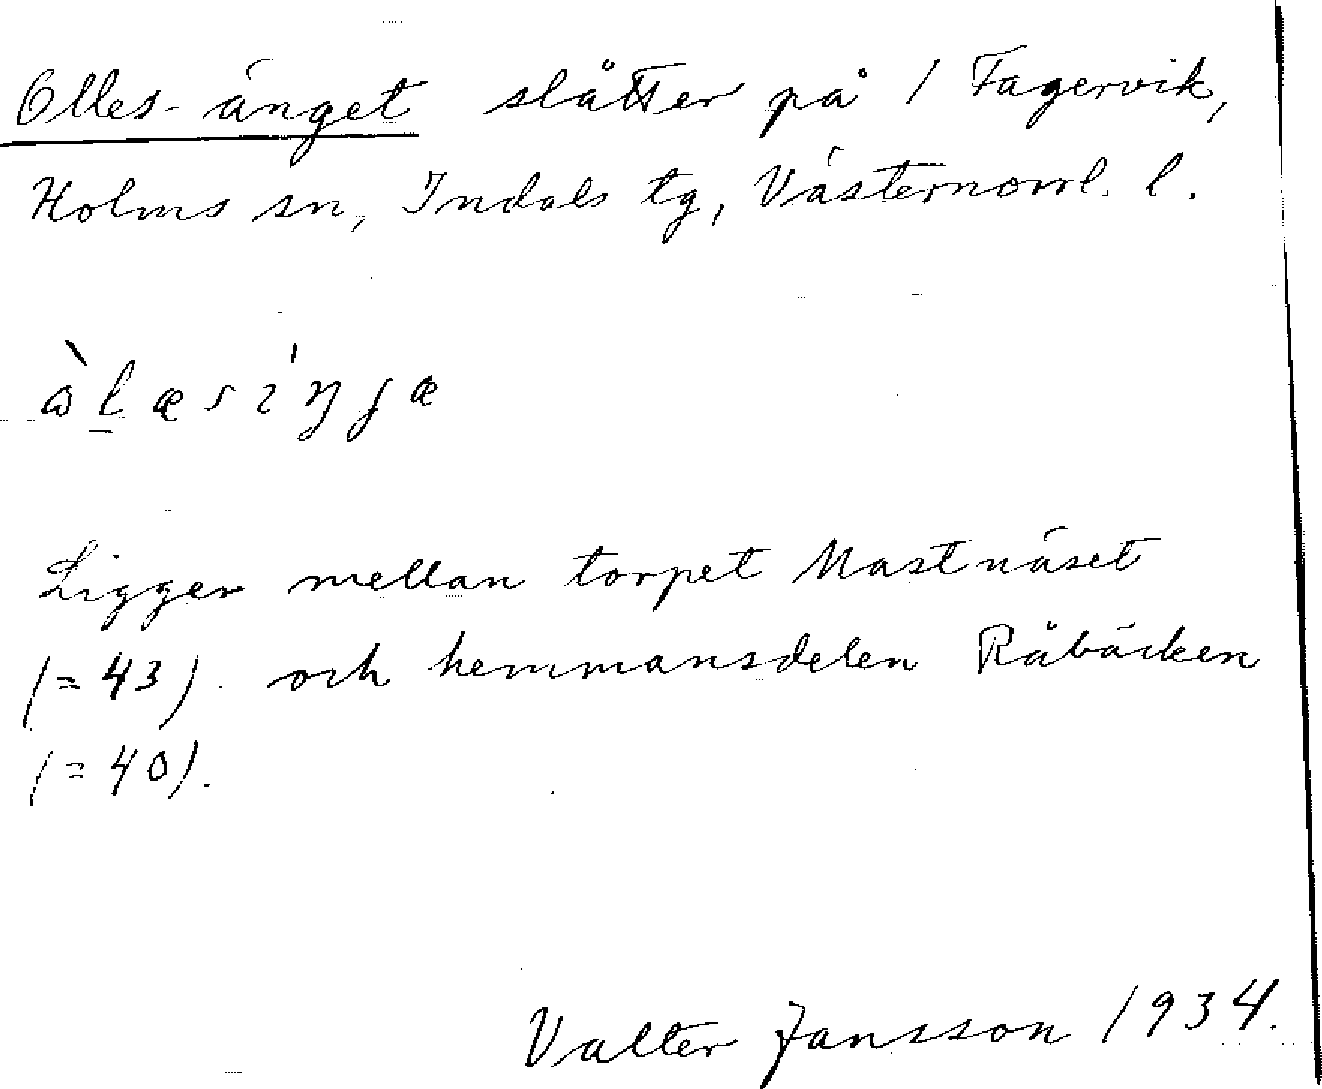 Olles-änget slåtter på 1 Fagervik,
Holms sn, Indals tg, Västernorrl. l.
Ligger mellan torpet Mastnäset
(=43). och hemmansdelen Råbäcken
(=40).
Valter Jansson 1934.